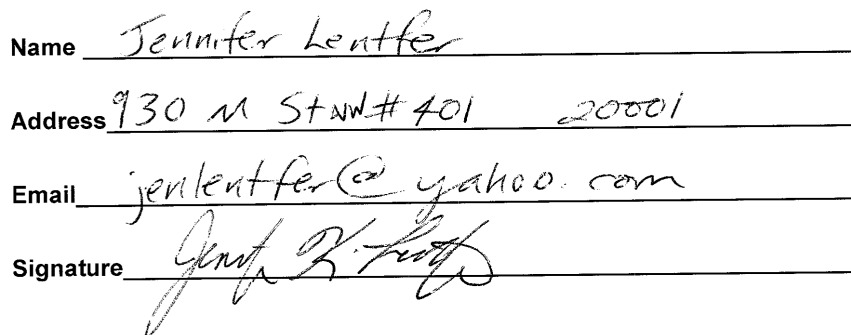 Name Jennifer Lentfer
Address 930 M St NW # 401 20001
Email jenlentfer@yahoo.com
Signature Jennifer K. Lentfer